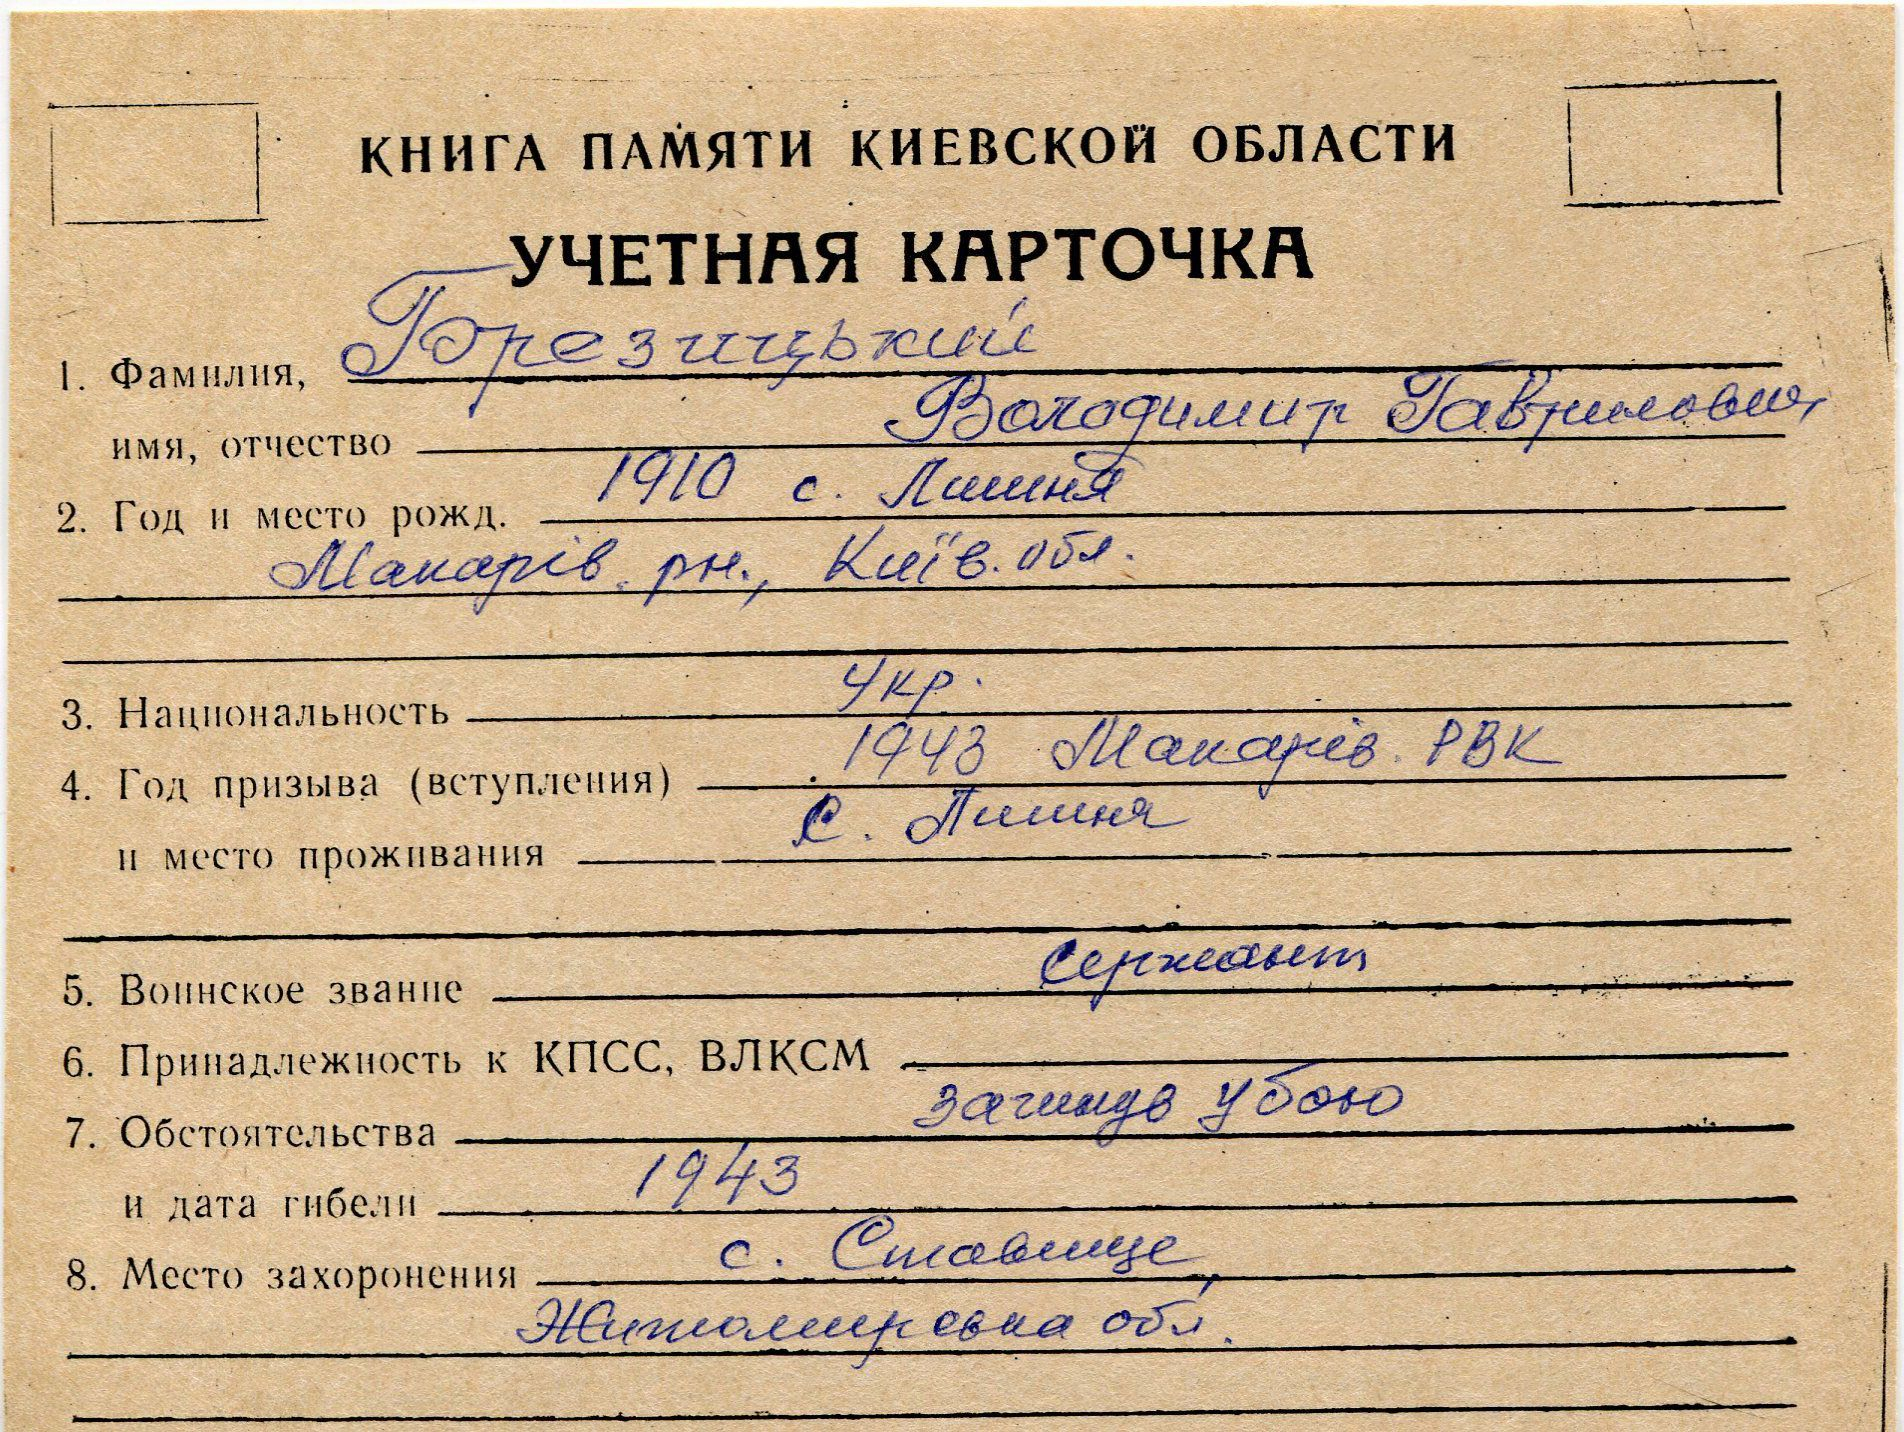 КНИГА ПАМЯТИ КИЕВСКОЙ ОБЛАСТИ
УЧЕТНАЯ КАРТОЧКА
1. Фамилия,
имя, отчество Володимир Гаврилович
2. Год и место рожд. 1910 с. Лишня
Макарів. рн., Київ. обл.
3. Национальность Укр.
4. Год призыва (вступления) 1943 Макарів. РВК
и место проживания с. Лишня
5. Воинское звание сержант
6. Принадлежность к КПСС, ВЛКСМ
7. Обстоятельства загинув у бою
и дата гибели 1943
8. Место захоронения с. Ставище,
Житомирська обл.